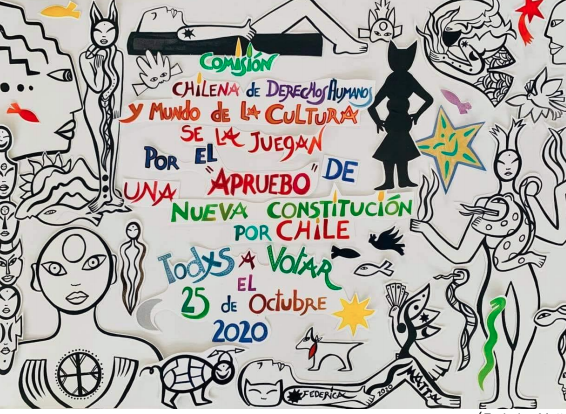 COMISIÓN
CHILENA de DERECHOS HUMANOS
y MUNDO de LA CULTURA
SE LA JUEGAN
POR EL "APRUEBO" DE
UNA
NUEVA CONSTITUCIÓN
POR CHILE
TodXs A VotAR
EL
25 de Octubre
2020
FEDERICA 2020 MATTA